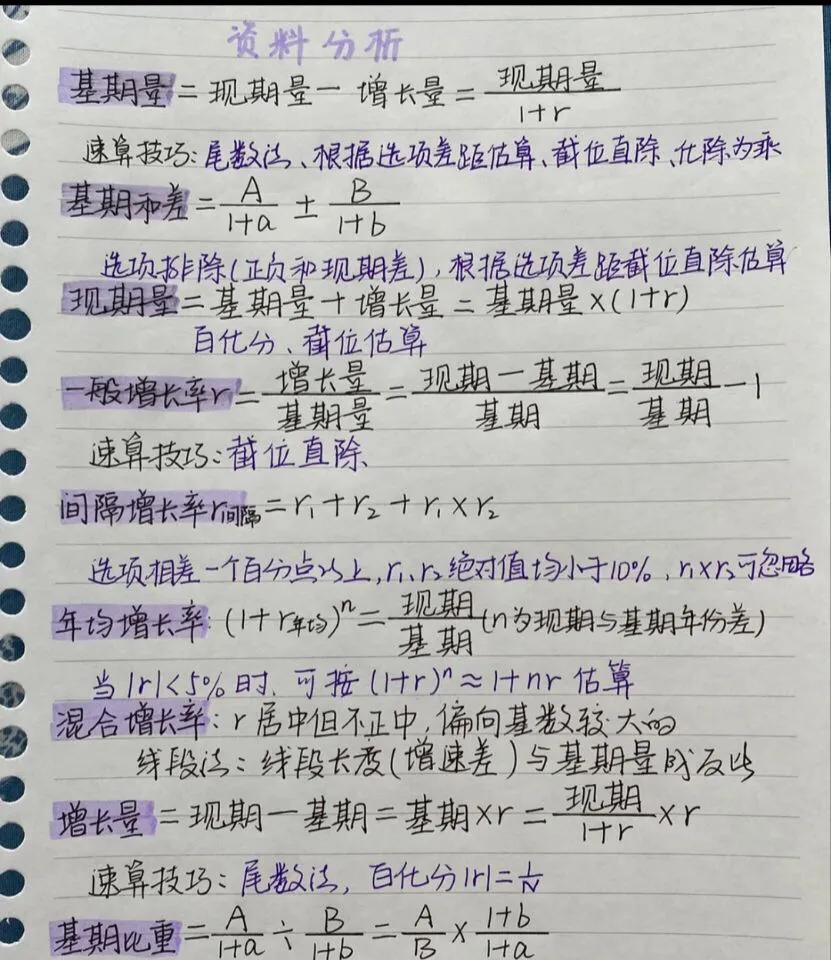 资料分析
基期量=现期量-增长量=现期量/(1+r)
速算技巧:尾数法、根据选项差距估算、截位直除、化除为乘
基期和差=A/(1+a)±B/(1+b)
选项排除(正负和现期差),根据选项差距截位直除估算
现期量=基期量+增长量=基期量×(1+r)
百化分、截位估算
一般增长率r=增长量/基期量=(现期-基期)/基期=现期/基期-1
速算技巧:截位直除
间隔增长率r间隔=r₁+r₂+r₁×r₂
选项相差一个百分点以上,r₁、r₂绝对值均小于10%,r₁×r₂可忽略
年均增长率:(1+r年均)ⁿ=现期/基期(n为现期与基期年份差)
当|r|<5%时,可按(1+r)ⁿ≈1+nr估算
混合增长率:r居中但不正中,偏向基数较大的
线段法:线段长度(增速差)与基期量成反比
增长量=现期-基期=基期×r=现期/(1+r)×r
速算技巧:尾数法,百化分|r|=1/N
基期比重=A/(1+a)÷B/(1+b)=A/B×(1+b)/(1+a)